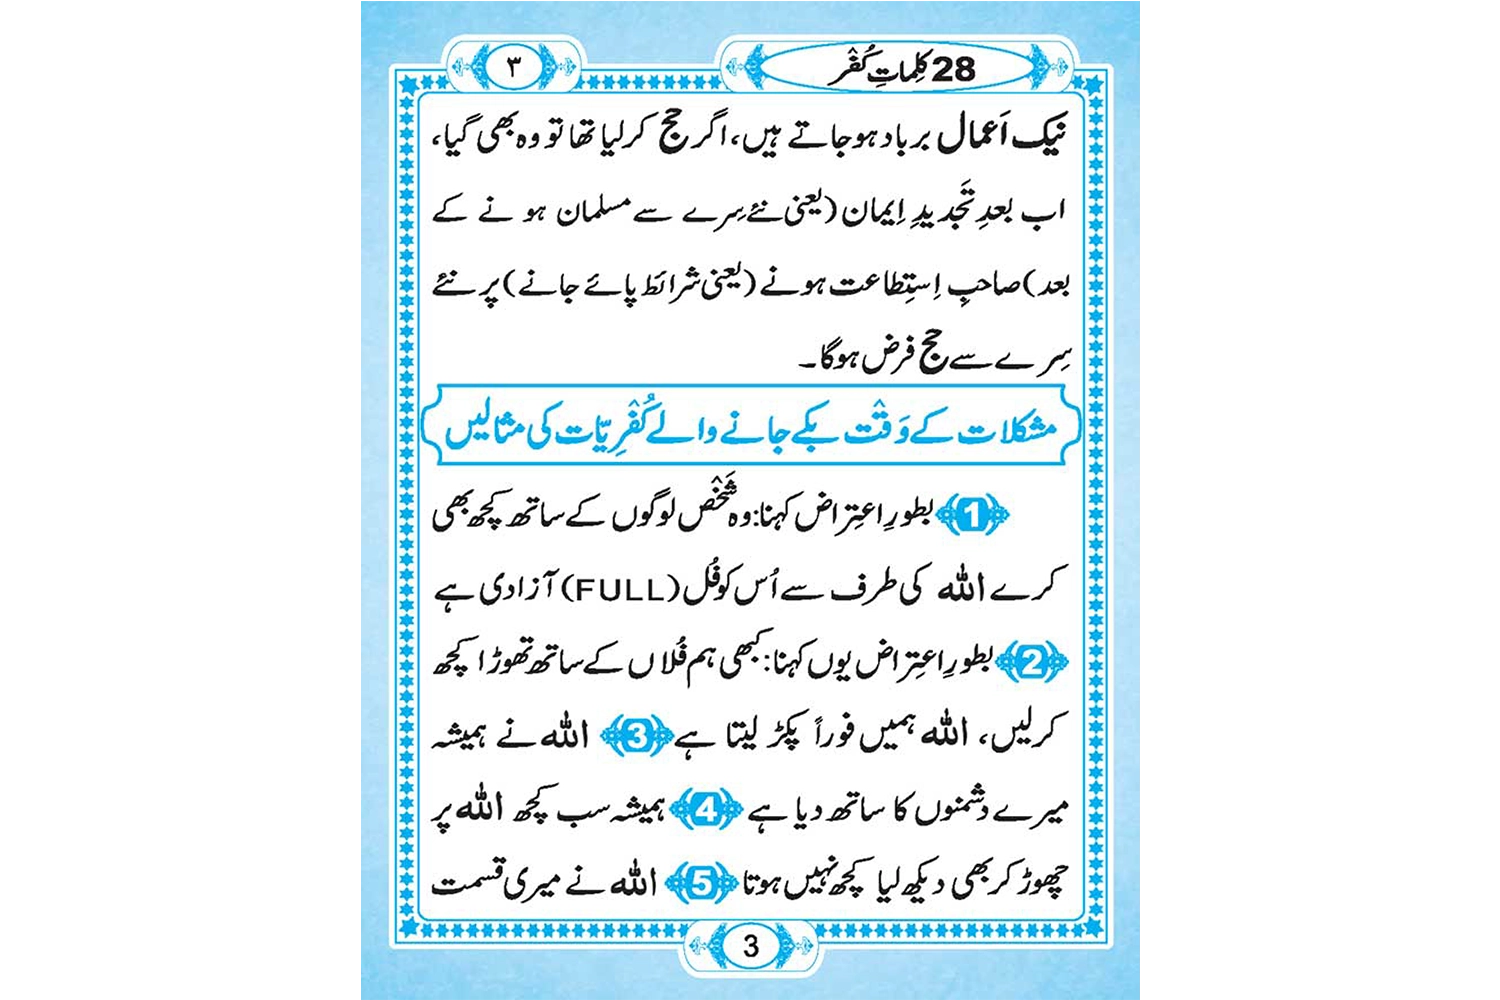 28 کلِماتِ کُفْر
۳
نیک اَعمال برباد ہوجاتے ہیں، اگر حج کرلیا تھا تو وہ بھی گیا،
اب بعدِ تَجدیدِ اِیمان (یعنی نئے سِرے سے مسلمان ہو نے کے
بعد) صاحبِ اِستِطاعت ہونے (یعنی شرائط پائے جانے) پر نئے
سِرے سے حج فرض ہوگا۔
مشکلات کے وَقْت بکے جانے والے کُفْرِیّات کی مثالیں
1 بطورِ اعتِراض کہنا: وہ شَخْص لوگوں کے ساتھ کچھ بھی
کرے اللہ کی طرف سے اُس کو فُل (FULL) آزادی ہے
2 بطورِ اعتِراض یوں کہنا: کبھی ہم فُلاں کے ساتھ تھوڑا کچھ
کرلیں، اللہ ہمیں فوراً پکڑ لیتا ہے 3 اللہ نے ہمیشہ
میرے دشمنوں کا ساتھ دیا ہے 4 ہمیشہ سب کچھ اللہ پر
چھوڑ کر بھی دیکھ لیا کچھ نہیں ہوتا 5 اللہ نے میری قسمت
3